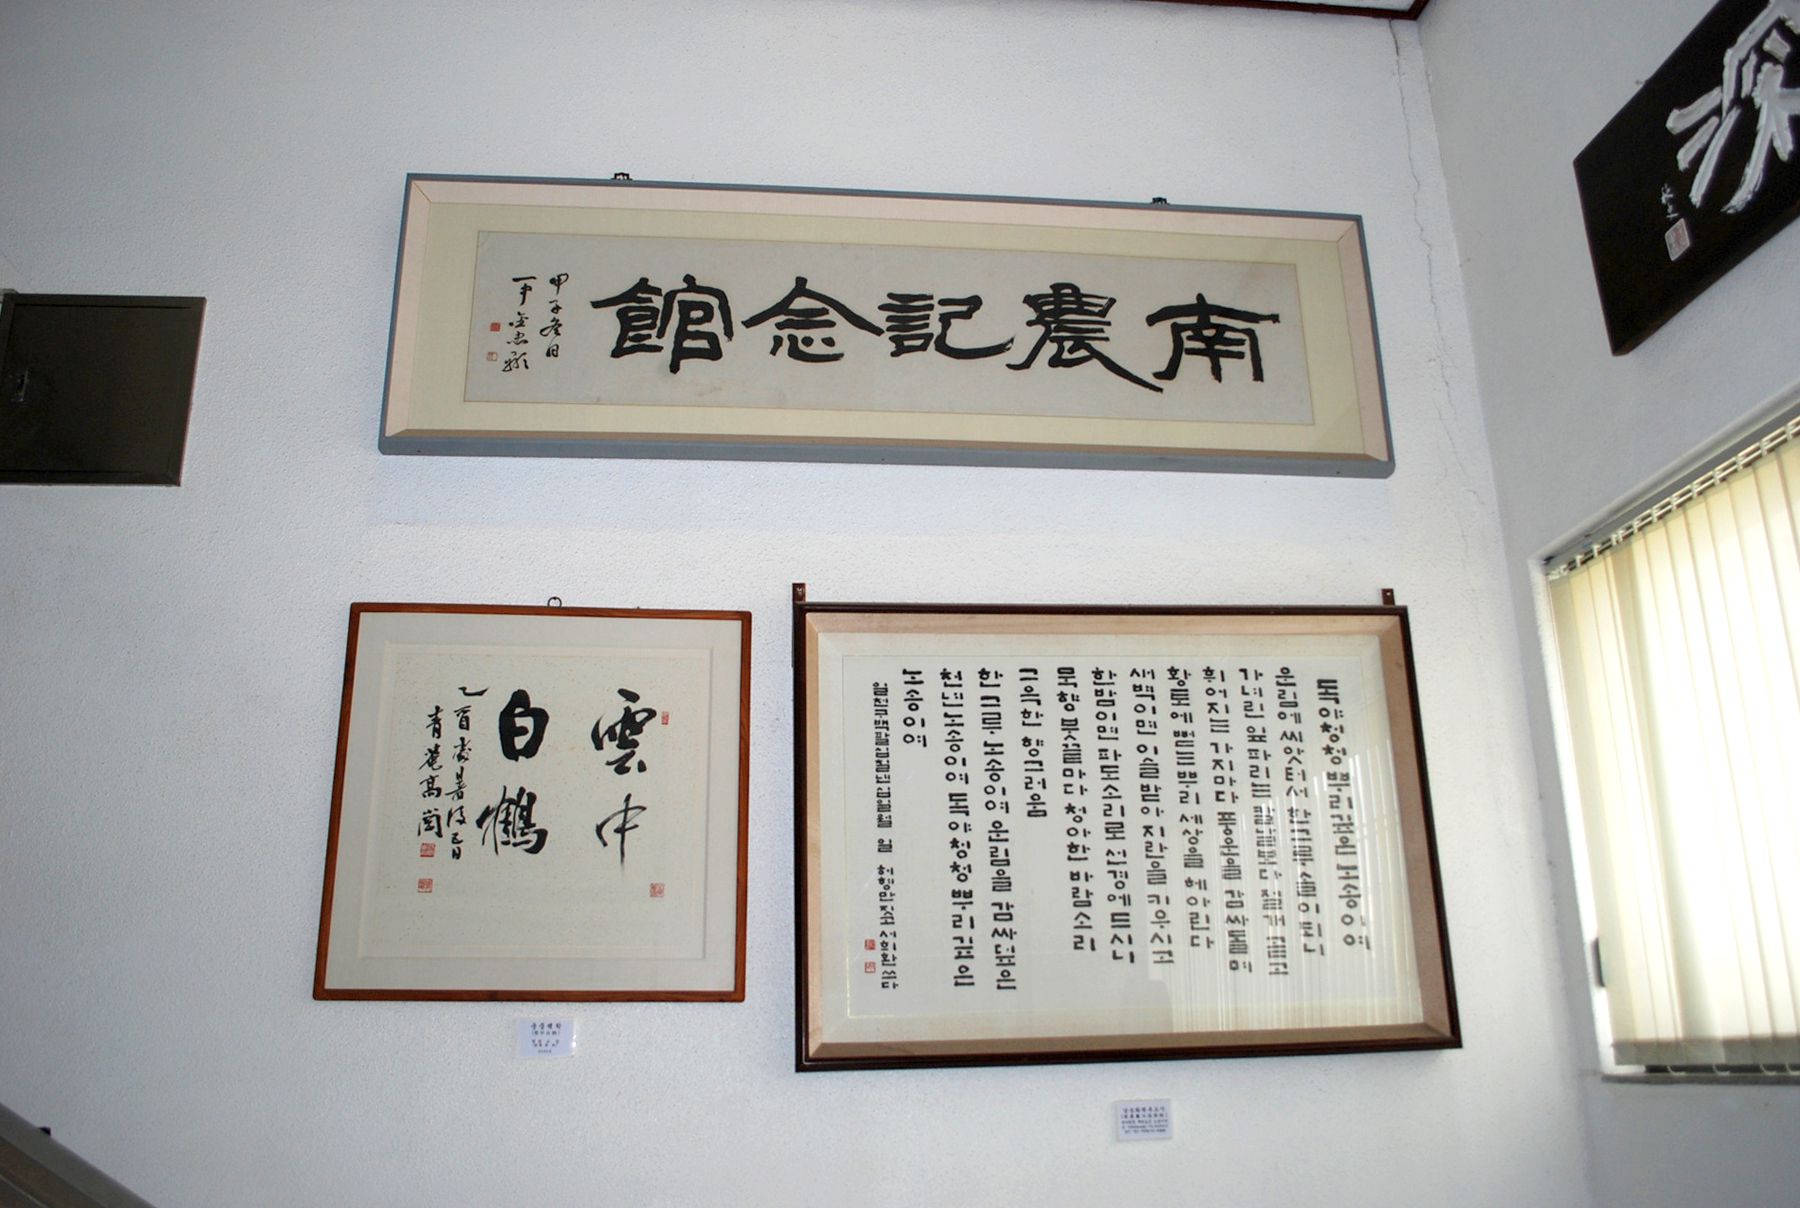 南農記念館
甲子冬日
一中 金忠顯
雲中
白鶴
乙酉處暑後 日
青菴 高崗
독야청청 뿌리깊은 노송이여
운림에 씨앗터서 한그루 솔이되니
가녀린 잎파리는 절개 곧고
휘어지는 가지마다 풍운을 감싸돌며
황토에 뻗는 뿌리 세상을 헤아린다
새벽이면 이슬받아 자란을 키우시고
한밤이면 파도소리로 선경에 드시니
묵향 붓끝마다 청아한 바람소리
그윽한 향그러움
한그루 노송이여 운림을 감싸덮은
천년노송이여 독야청청 뿌리깊은
노송이여
일천구백팔십 년 십일월 일 허형만 짓고 서희환 쓰다
운중백학